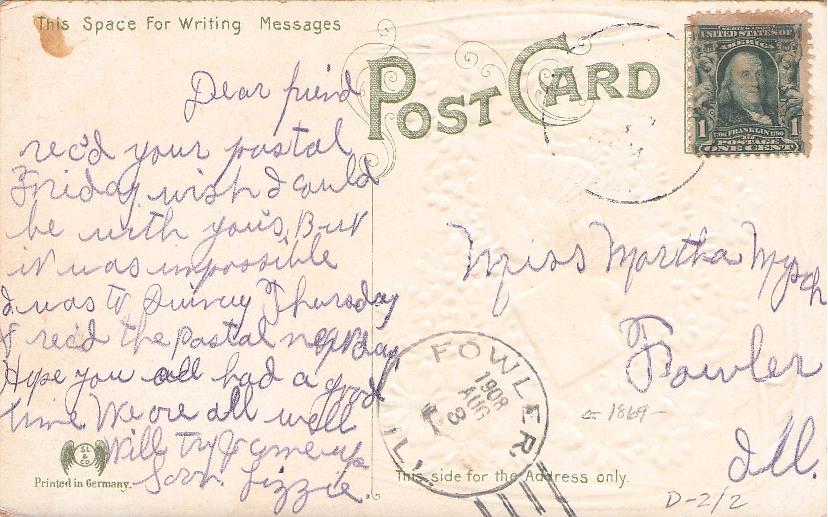 This Space For Writing Messages
POST CARD
SERIES 1902
UNITED STATES OF
AMERICA
1 1706 FRANKLIN 1790 1
POSTAGE
ONE CENT
Dear friend
rec'd your postal
Friday wish I could
be with you's, But
it was impossible
I was to Quincy Thursday
& rec'd the postal next day
Hope you all had a good
time We are all well
Will try & come up
Soon Lizzie.
Miss Martha
Fowler
Ill.
FOWLER
1908
AUG
3
ILL.
1869
SL & Co
Printed in Germany.
This side for the Address only.
D-2/2